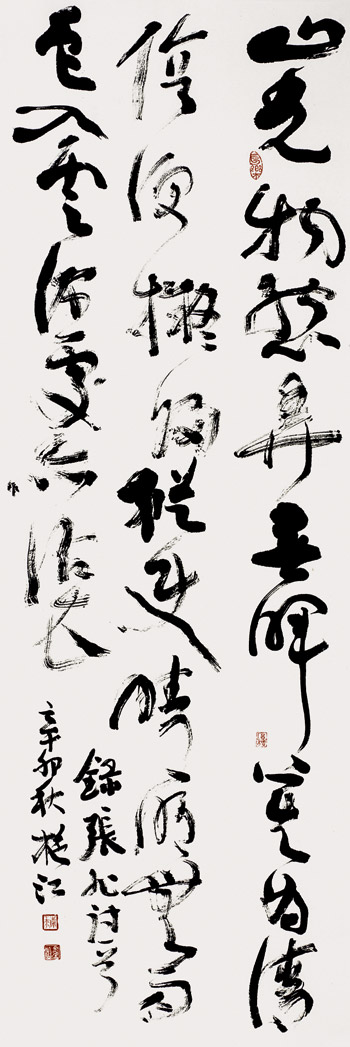 山光物態弄春暉莫為輕
陰便擬歸縱使晴明無雨
色入雲深處亦沾衣
錄張旭詩首
辛卯秋江